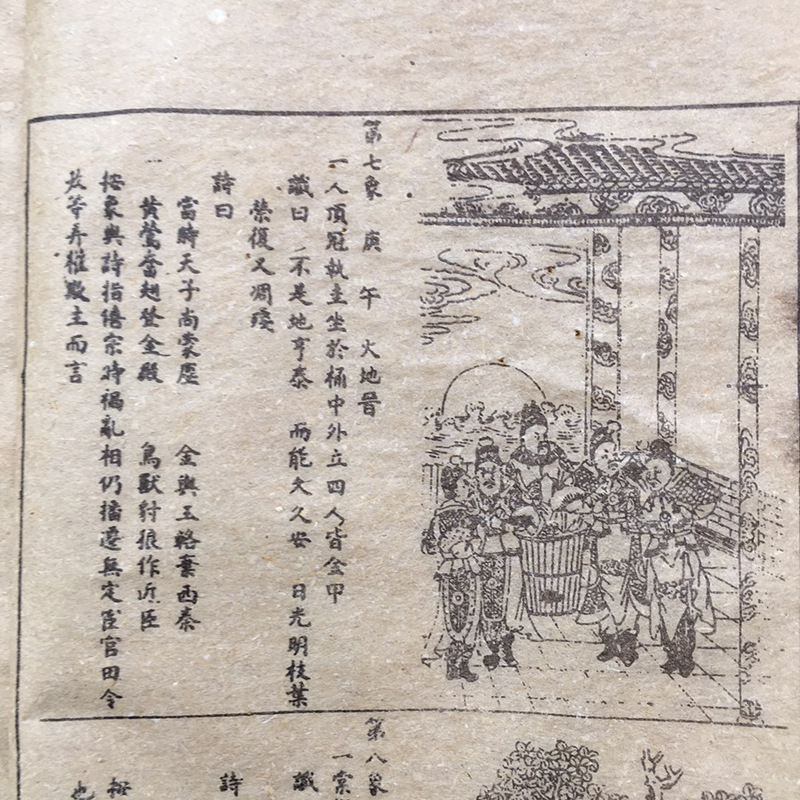 第七象 庚 午 火地晉
一人頂冠執圭坐於桶中外立四人皆金甲
讖曰 不是地亨泰 而能久久安 日光明枝葉
榮復又凋殘
詩曰
當時天子尚蒙塵 金輿玉輅棄西秦
黃鶯奮翅登金殿 鳥獸豺狼作近臣
按象與詩指僖宗時禍亂相仍播遷無定宦官田令
孜等弄權欺主而言
第八象
一棠
讖
詩
按
也